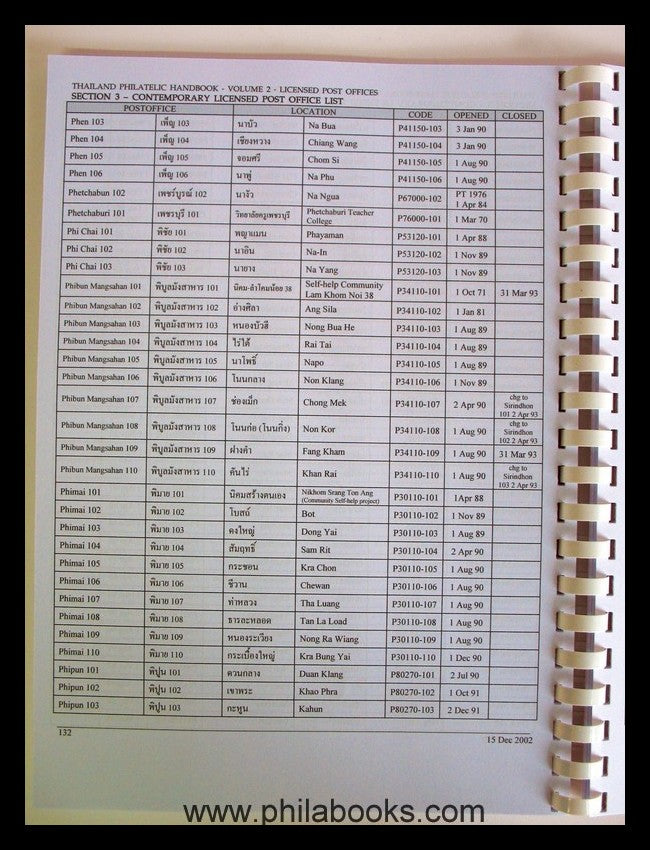 THAILAND PHILATELIC HANDBOOK - VOLUME 2 - LICENSED POST OFFICES
SECTION 3 – CONTEMPORARY LICENSED POST OFFICE LIST
POSTOFFICE LOCATION CODE OPENED CLOSED
Phen 103 เพ็ญ 103 นาบัว Na Bua P41150-103 3 Jan 90
Phen 104 เพ็ญ 104 เชียงหวาง Chiang Wang P41150-104 3 Jan 90
Phen 105 เพ็ญ 105 จอมศรี Chom Si P41150-105 1 Aug 90
Phen 106 เพ็ญ 106 นาพู่ Na Phu P41150-106 1 Aug 90
Phetchabun 102 เพชรบูรณ์ 102 นางั่ว Na Ngua P67000-102 PT 1976
1 Apr 84
Phetchaburi 101 เพชรบุรี 101 วิทยาลัยครูเพชรบุรี Phetchaburi Teacher
College P76000-101 1 Mar 70
Phi Chai 101 พิชัย 101 พญาแมน Phayaman P53120-101 1 Apr 88
Phi Chai 102 พิชัย 102 นาอิน Na-In P53120-102 1 Nov 89
Phi Chai 103 พิชัย 103 นายาง Na Yang P53120-103 1 Nov 89
Phibun Mangsahan 101 พิบูลมังสาหาร 101 นิคม-ลำโดมน้อย 38 Self-help Community
Lam Khom Noi 38 P34110-101 1 Oct 71 31 Mar 93
Phibun Mangsahan 102 พิบูลมังสาหาร 102 อ่างศิลา Ang Sila P34110-102 1 Jan 81
Phibun Mangsahan 103 พิบูลมังสาหาร 103 หนองบัวฮี Nong Bua He P34110-103 1 Aug 89
Phibun Mangsahan 104 พิบูลมังสาหาร 104 ไร่ใต้ Rai Tai P34110-104 1 Aug 89
Phibun Mangsahan 105 พิบูลมังสาหาร 105 นาโพธิ์ Napo P34110-105 1 Aug 89
Phibun Mangsahan 106 พิบูลมังสาหาร 106 โนนกลาง Non Klang P34110-106 1 Nov 89
Phibun Mangsahan 107 พิบูลมังสาหาร 107 ช่องเม็ก Chong Mek P34110-107 2 Apr 90 chg to
Sirindhon
101 2 Apr 93
Phibun Mangsahan 108 พิบูลมังสาหาร 108 โนนก่อ (โนนกิ่ง) Non Kor P34110-108 1 Aug 90 chg to
Sirindhon
102 2 Apr 93
Phibun Mangsahan 109 พิบูลมังสาหาร 109 ฝางคำ Fang Kham P34110-109 1 Aug 90 31 Mar 93
Phibun Mangsahan 110 พิบูลมังสาหาร 110 คันไร่ Khan Rai P34110-110 1 Aug 90 chg to
Sirindhon
103 2 Apr 93
Phimai 101 พิมาย 101 นิคมสร้างตนเอง Nikhom Srang Ton Ang
(Community Self-help project) P30110-101 1Apr 88
Phimai 102 พิมาย 102 โบสถ์ Bot P30110-102 1 Nov 89
Phimai 103 พิมาย 103 ดงใหญ่ Dong Yai P30110-103 1 Aug 89
Phimai 104 พิมาย 104 สัมฤทธิ์ Sam Rit P30110-104 2 Apr 90
Phimai 105 พิมาย 105 กระชอน Kra Chon P30110-105 1 Aug 90
Phimai 106 พิมาย 106 ชีวาน Chewan P30110-106 1 Aug 90
Phimai 107 พิมาย 107 ท่าหลวง Tha Luang P30110-107 1 Aug 90
Phimai 108 พิมาย 108 ธารละหลอด Tan La Load P30110-108 1 Aug 90
Phimai 109 พิมาย 109 หนองระเวียง Nong Ra Wiang P30110-109 1 Aug 90
Phimai 110 พิมาย 110 กระเบื้องใหญ่ Kra Bung Yai P30110-110 1 Dec 90
Phipun 101 พิปูน 101 ควนกลาง Duan Klang P80270-101 2 Jul 90
Phipun 102 พิปูน 102 เขาพระ Khao Phra P80270-102 1 Oct 91
Phipun 103 พิปูน 103 กะทูน Kahun P80270-103 2 Dec 91
132
15 Dec 2002
www.philabooks.com